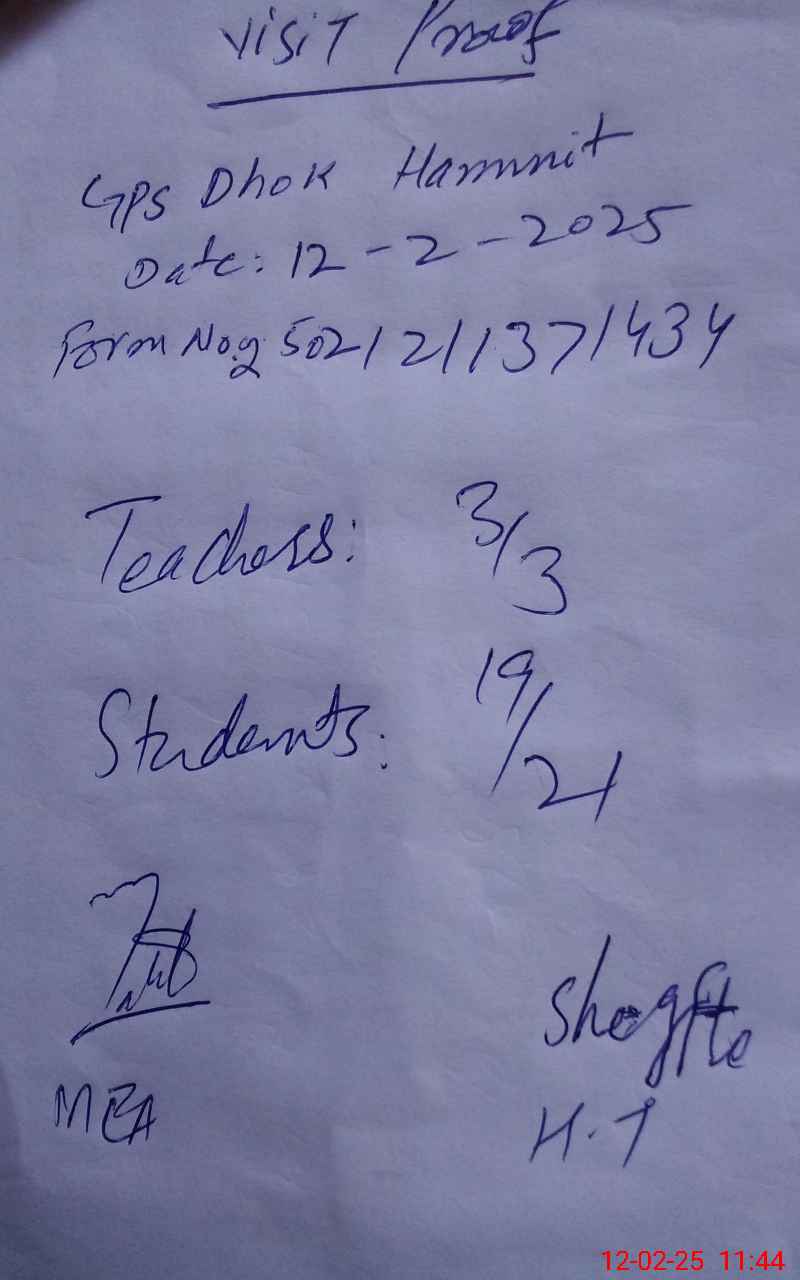 Visit Proof
GPS Dhok Hammit
Date: 12-2-2025
Form No. 5021211371434
Teachers: 3/3
Students: 19/21
MEA
H.T
12-02-25 11:44